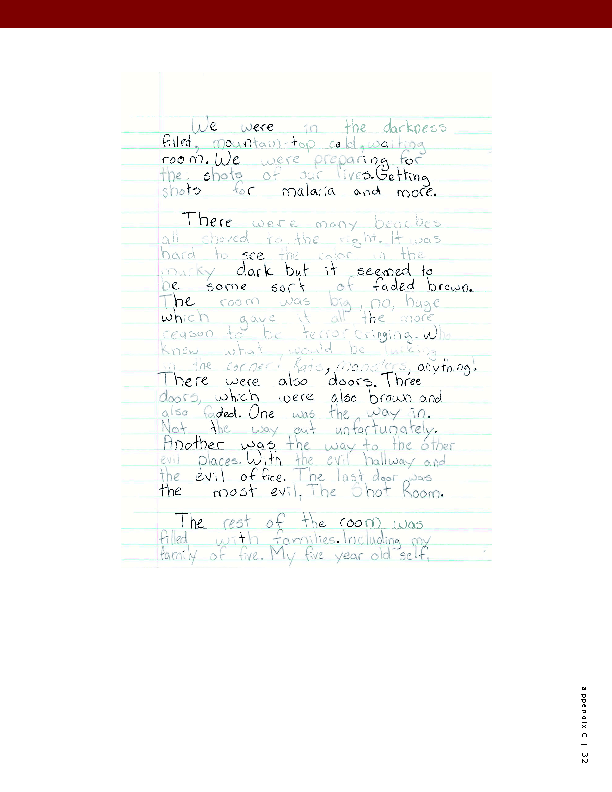 We were in the darkness
filled, mountain-top cold, waiting
room. We were preparing for
the shots of our lives. Getting
shots for malaria and more.
There were many benches
all to the right. It was
hard to see the color in the
murky dark but it seemed to
be some sort of faded brown.
The room was big, no, huge
which gave it all the more
reason to be terror bringing. Who
knew what would be lurking
in the corner! Rats, monsters, anything!
There were also doors. Three
doors, which were also brown and
also faded. One was the way in.
Not the way out unfortunately.
Another was the way to the other
evil places. With the evil hallway and
the evil office. The last door was
the most evil. The Shot Room.
The rest of the room was
filled with families. Including my
family of five. My five year old self,
appendix C | 32